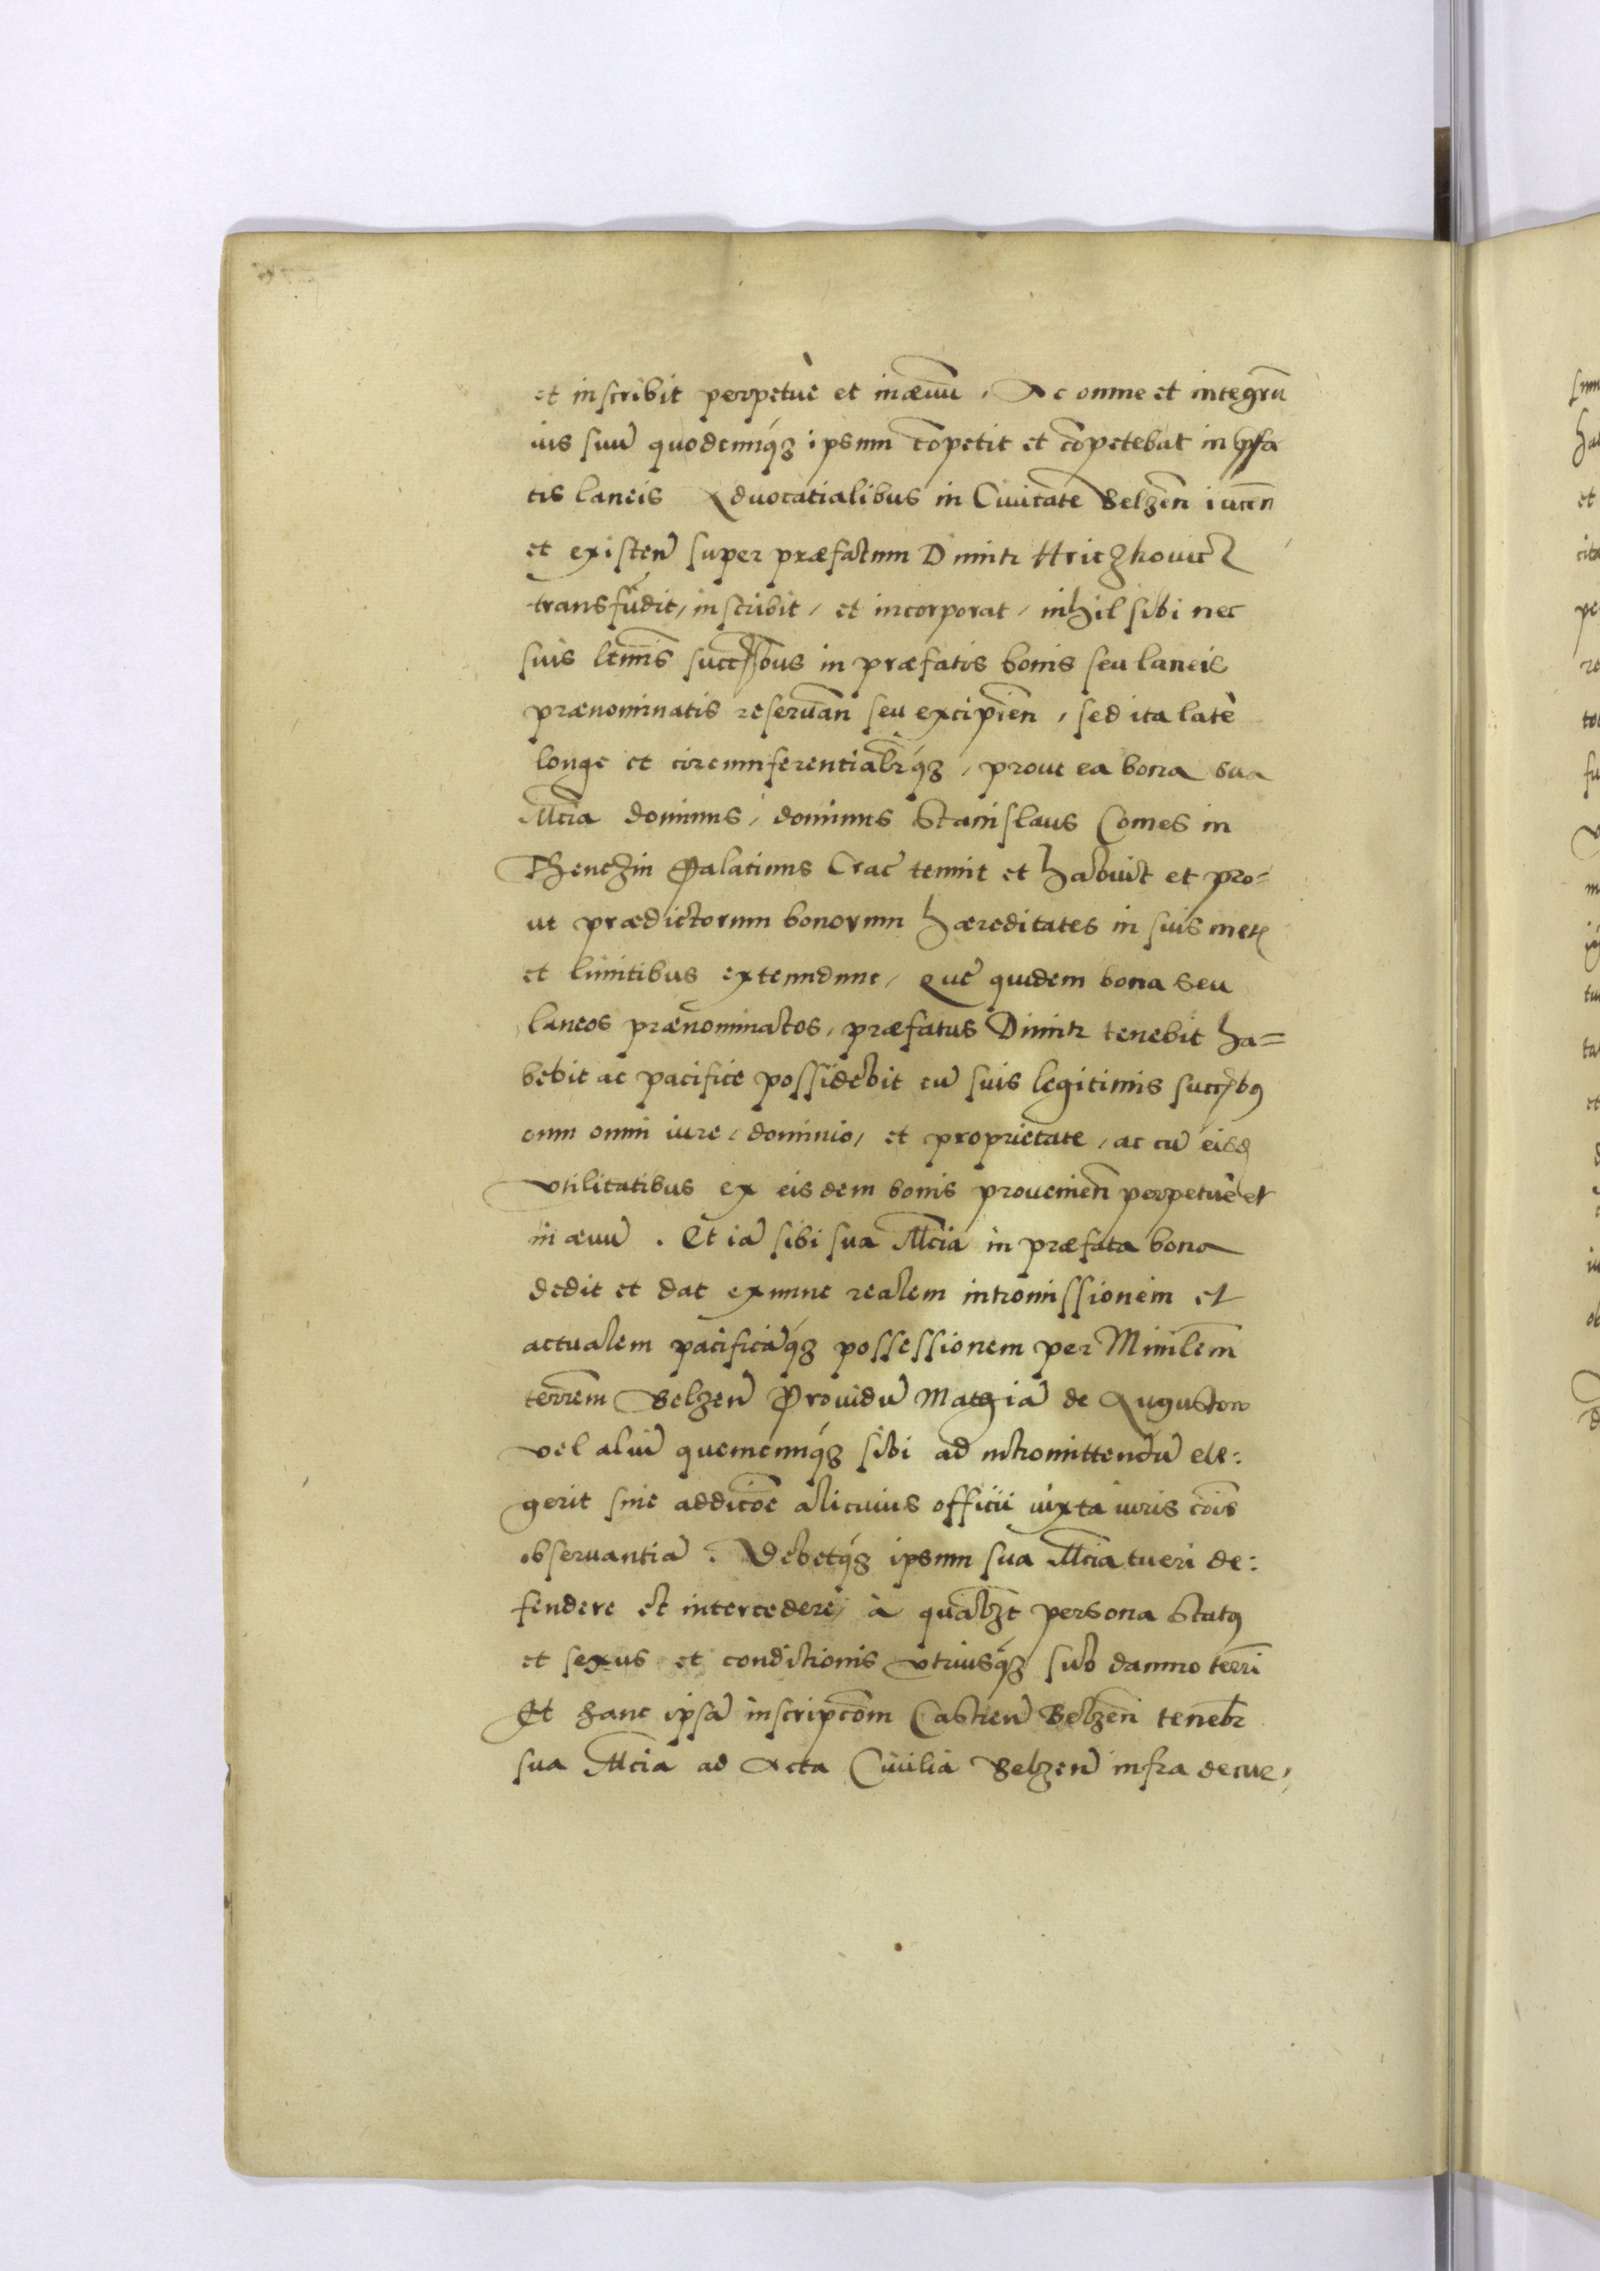 et inscribit perpetuè et in æuũ, Ac omne et integrũ
ius suũ quodcunqȝ ipsum cõpetit et cõpetebat in p̃fa
tis laneis Aduocatialibus in Ciuitate Belzeñ iaceñ
et existeñ super præfatum Dimitr Hriczkouicz
transfũdit, inscribit, et incorporat, nihil sibi nec
suis ltimĩs succẽssõbus in præfatis bonis seu laneis
prænominatis reseruãn seu excipieñ, sed ita latè
longe et circumferentialr̃qȝ, prout ea bona sua
Mcĩa dominus, dominus Stanislaus Comes in
Thenczin Palatinus Crac̃ tenuit et habuit et pro=
ut prædictorum bonorum hæreditates in suis metis
et limitibus extenndunt, Que quidem bona seu
laneos prænominatos, præfatus Dimitr tenebit ha=
bebit ac pacifice possidebit cũ suis legitimis succ̃bꝰ
cum omni iure, dominio, et proprietate, ac cũ eisd
vtilitatibus ex eisdem bonis prouenieñ perpetuè et
in æuũ. Et iã sibi sua Mcĩa in præfata bona
dedit et dat exnunc realem intromissionem et
actualem pacificãqȝ possessionem per Minilẽm
terrẽm Belzeñ Prouidũ Mathiã de Augustow
vel aliũ quemcunqȝ sibi ad intromittendũ ele:
gerit sine addicõe alicuius officii iuxta iuris cõis
obseruantiã. Debetqȝ ipsum sua Mcĩa tueri de:
fendere et intercedere, à qualzt̃ persona statꝰ
et sexus et conditionis vtriusqȝ sub damno terrĩ
Et hanc ipsã inscripcõm Castreñ Belzeñ tenebr̃
sua Mcĩa ad Acta Ciuilia Belzeñ infra decur,